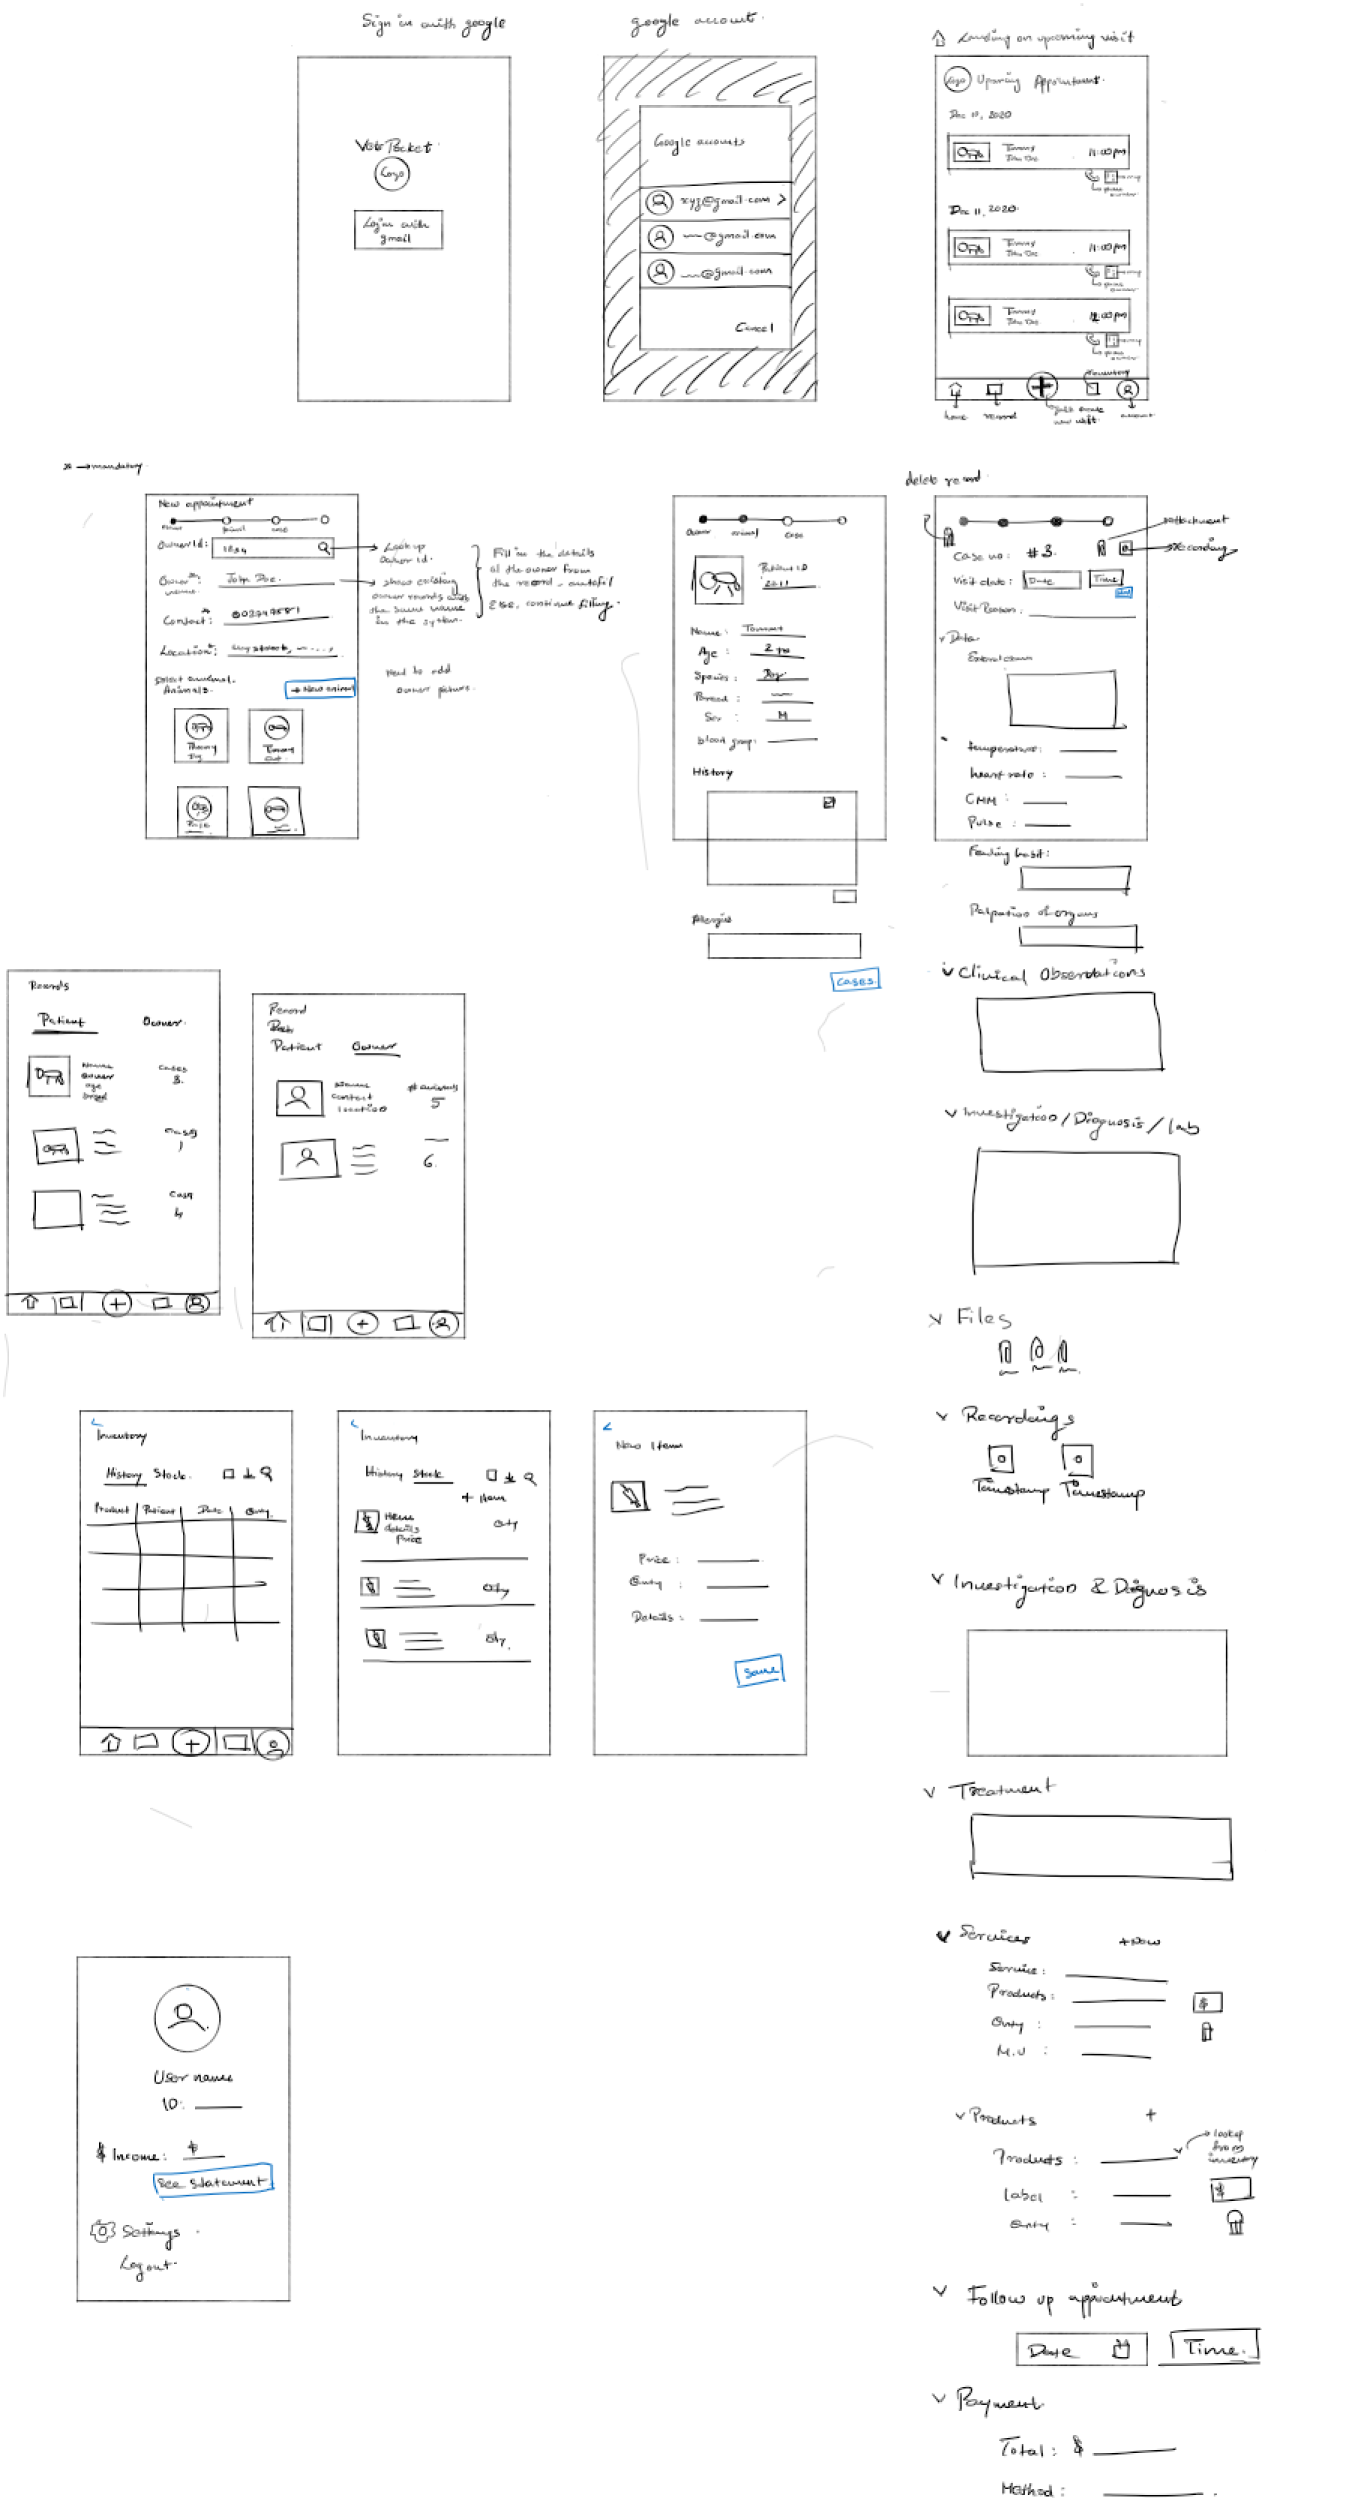 Sign in with google
Vets Pocket
Logo
Login with
gmail
google account.
Google accounts
xyz@gmail.com >
@gmail.com
@gmail.com
Cancel
Landing on upcoming visit
Logo
Appointment.
Dec 10, 2020
Tommy
John Doe
11:00 pm
Dec 11, 2020
Tommy
John Doe
11:00 pm
Tommy
John Doe
12:00 pm
Inventory
home
record
new visit
account
* → mandatory
New appointment
owner
animal
case
Owner Id:
1234
Look up
Owner id.
Owner*:
name
John Doe.
show existing
owner records with
the same name
in the system.
Fill in the details
of the owner from
the record, autofill
Else, continue filling.
Contact*:
Location*:
Select animal.
Animals.
+ New animal
Need to add
owner picture.
Tommy
Dog
Tommy
Cat
Owner
animal
Case
Patient ID
2211
Name:
Tommy
Age:
2 yrs
Species:
Dog
Breed:
Sex:
M
blood group:
History
Allergies
Cases
delete record
attachment
recording
Case no: #3.
Visit date:
Date
Time
Visit Reason:
Data
External exam
temperature:
heart rate:
CMM:
Pulse:
Feeding habit:
Palpation of organs
Clinical Observations
Investigation/Diagnosis/lab
Files
Recordings
Timestamp
Timestamp
Investigation & Diagnosis
Treatment
Services
+ New
Service:
Products:
$
Qnty:
M.U:
Products
+
Products:
lookup
from
inventory
Label:
$
Qnty:
Follow up appointment
Date
Time.
Payment
Total: $
Method:
Records
Patient
Owner.
Name
owner
age
breed
Cases
3.
Cases
1
Case
4
Record
Patient
Owner
Name
contact
location
# animals
5
6.
Inventory
History Stock.
Product
Patient
Date
Qnty.
Inventory
History Stock
+ Item
Item
details
Price
Qty
Qty
Qty.
New Item
Price:
Qnty:
Details:
Save
User name
ID:
$ Income: $
See statement
Settings
Logout